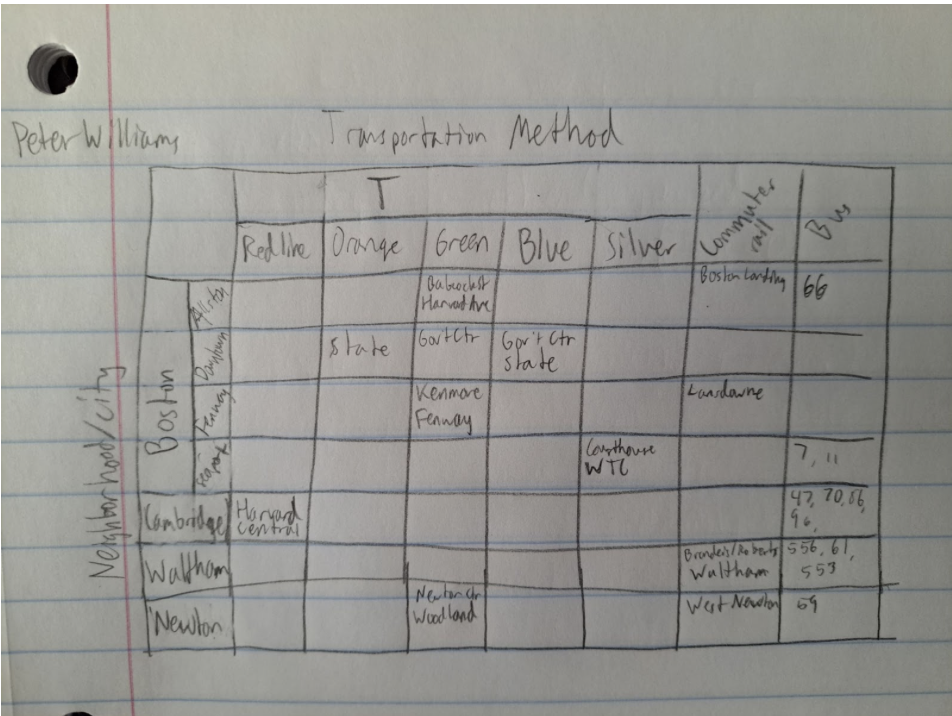 Peter Williams
Transportation Method
T
Commuter rail
Bus
Red line Orange Green Blue Silver
Neighborhood/City
Boston
Allston
Babcock St
Harvard Ave
Boston Landing
66
Downtown
State
Gov't Ctr
Gov't Ctr
State
Fenway
Kenmore
Fenway
Lansdowne
Seaport
Courthouse
WTC
7, 11
Cambridge
Harvard
Central
47, 70, 66,
96,
Waltham
Brandeis/Roberts
Waltham
556, 61,
553
Newton
Newton Ctr
Woodland
West Newton
59